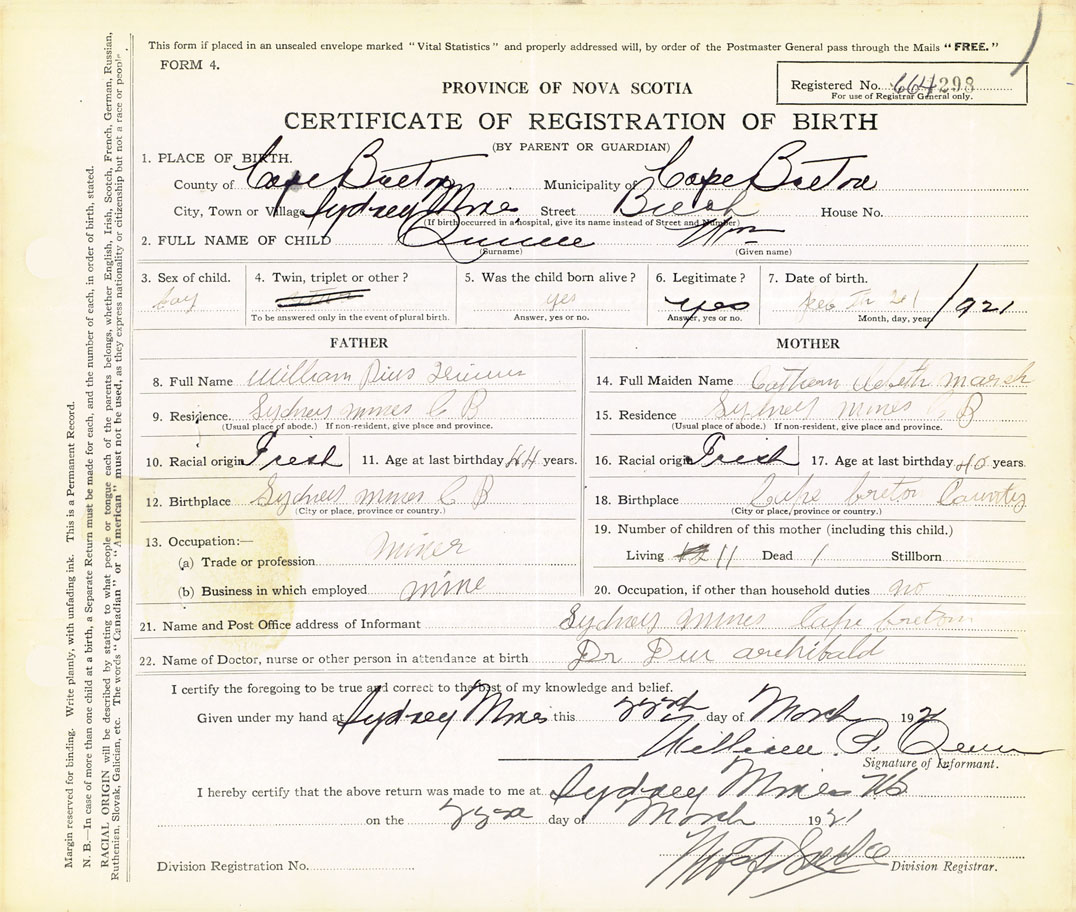 This form if placed in an unsealed envelope marked "Vital Statistics" and properly addressed will, by order of the Postmaster General pass through the Mails "FREE."
FORM 4.
PROVINCE OF NOVA SCOTIA
Registered No. 664298
For use of Registrar General only.
CERTIFICATE OF REGISTRATION OF BIRTH
(BY PARENT OR GUARDIAN)
1. PLACE OF BIRTH.
County of Cape Breton Municipality of Cape Breton
City, Town or Village Sydney Mines Street House No.
(If birth occurred in a hospital, give its name instead of Street and Number)
2. FULL NAME OF CHILD Wm
(Surname) (Given name)
3. Sex of child. 4. Twin, triplet or other? 5. Was the child born alive? 6. Legitimate? 7. Date of birth.
boy yes yes 21 1921
To be answered only in the event of plural birth. Answer, yes or no. Answer, yes or no. Month, day, year
FATHER MOTHER
8. Full Name William Pius
14. Full Maiden Name Marsh
9. Residence. Sydney mines C B
15. Residence Sydney mines C B
(Usual place of abode.) If non-resident, give place and province.
(Usual place of abode.) If non-resident, give place and province.
10. Racial origin Irish 11. Age at last birthday 44 years.
16. Racial origin Irish 17. Age at last birthday 40 years.
12. Birthplace Sydney mines C B
18. Birthplace Cape breton County
(City or place, province or country.)
(City or place, province or country.)
13. Occupation:—
(a) Trade or profession miner
(b) Business in which employed mine
19. Number of children of this mother (including this child.)
Living 11 Dead 1 Stillborn
20. Occupation, if other than household duties no
21. Name and Post Office address of Informant Sydney mines Cape breton
22. Name of Doctor, nurse or other person in attendance at birth Dr archibald
I certify the foregoing to be true and correct to the best of my knowledge and belief.
Given under my hand at Sydney Mines this day of March 1921
William P.
Signature of Informant.
I hereby certify that the above return was made to me at Sydney Mines NS
on the day of March 1921
Division Registration No. Division Registrar.
Margin reserved for binding. Write plainly, with unfading ink. This is a Permanent Record.
N. B.—In case of more than one child at a birth, a Separate Return must be made for each, and the number of each, in order of birth, stated.
RACIAL ORIGIN will be described by stating to what people or tongue each of the parents belongs, whether English, Irish, Scotch, French, German, Russian,
Ruthenian, Slovak, Galician, etc. The words "Canadian" or "American" must not be used, as they express nationality or citizenship but not a race or people